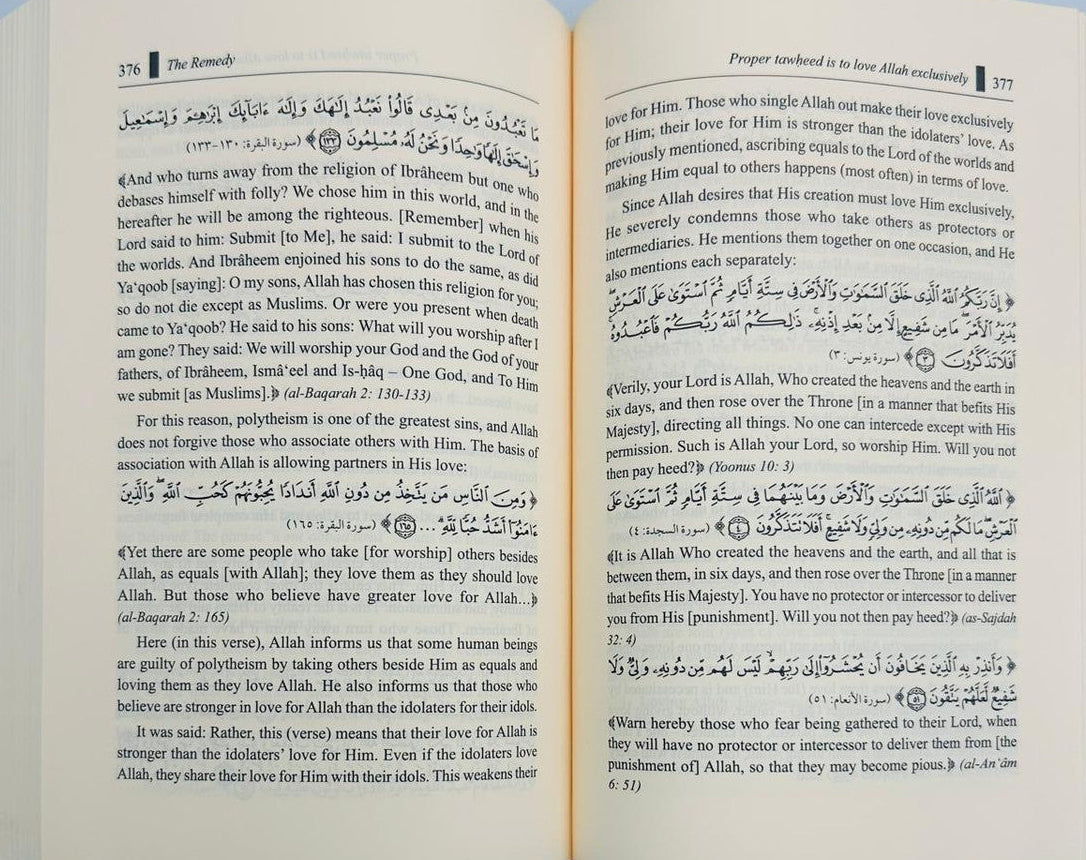 376 The Remedy
مَا تَعْبُدُونَ مِنۢ بَعْدِى قَالُوا۟ نَعْبُدُ إِلَٰهَكَ وَإِلَٰهَ ءَابَآئِكَ إِبْرَٰهِـۧمَ وَإِسْمَٰعِيلَ
وَإِسْحَٰقَ إِلَٰهًا وَٰحِدًا وَنَحْنُ لَهُۥ مُسْلِمُونَ ١٣٣ ﴾ (سورة البقرة: ١٣٠-١٣٣)
﴾And who turns away from the religion of Ibrâheem but one who
debases himself with folly? We chose him in this world, and in the
hereafter he will be among the righteous. [Remember] when his
Lord said to him: Submit [to Me], he said: I submit to the Lord of
the worlds. And Ibrâheem enjoined his sons to do the same, as did
Ya‘qoob [saying]: O my sons, Allah has chosen this religion for you;
so do not die except as Muslims. Or were you present when death
came to Ya‘qoob? He said to his sons: What will you worship after I
am gone? They said: We will worship your God and the God of your
fathers, of Ibrâheem, Ismâ‘eel and Is-ḥâq – One God, and To Him
we submit [as Muslims].﴿ (al-Baqarah 2: 130-133)
For this reason, polytheism is one of the greatest sins, and Allah
does not forgive those who associate others with Him. The basis of
association with Allah is allowing partners in His love:
﴿ وَمِنَ ٱلنَّاسِ مَن يَتَّخِذُ مِن دُونِ ٱللَّهِ أَندَادًا يُحِبُّونَهُمْ كَحُبِّ ٱللَّهِ ۖ وَٱلَّذِينَ
ءَامَنُوٓا۟ أَشَدُّ حُبًّا لِّلَّهِ ۗ ... ١٦٥ ﴾ (سورة البقرة: ١٦٥)
﴾Yet there are some people who take [for worship] others besides
Allah, as equals [with Allah]; they love them as they should love
Allah. But those who believe have greater love for Allah...﴿
(al-Baqarah 2: 165)
Here (in this verse), Allah informs us that some human beings
are guilty of polytheism by taking others beside Him as equals and
loving them as they love Allah. He also informs us that those who
believe are stronger in love for Allah than the idolaters for their idols.
It was said: Rather, this (verse) means that their love for Allah is
stronger than the idolaters’ love for Him. Even if the idolaters love
Allah, they share their love for Him with their idols. This weakens their
Proper tawḥeed is to love Allah exclusively 377
love for Him. Those who single Allah out make their love exclusively
for Him; their love for Him is stronger than the idolaters’ love. As
previously mentioned, ascribing equals to the Lord of the worlds and
making Him equal to others happens (most often) in terms of love.
Since Allah desires that His creation must love Him exclusively,
He severely condemns those who take others as protectors or
intermediaries. He mentions them together on one occasion, and He
also mentions each separately:
﴿ إِنَّ رَبَّكُمُ ٱللَّهُ ٱلَّذِى خَلَقَ ٱلسَّمَٰوَٰتِ وَٱلْأَرْضَ فِى سِتَّةِ أَيَّامٍ ثُمَّ ٱسْتَوَىٰ عَلَى ٱلْعَرْشِ ۖ
يُدَبِّرُ ٱلْأَمْرَ ۖ مَا مِن شَفِيعٍ إِلَّا مِنۢ بَعْدِ إِذْنِهِۦ ۚ ذَٰلِكُمُ ٱللَّهُ رَبُّكُمْ فَٱعْبُدُوهُ ۚ
أَفَلَا تَذَكَّرُونَ ٣ ﴾ (سورة يونس: ٣)
﴾Verily, your Lord is Allah, Who created the heavens and the earth in
six days, and then rose over the Throne [in a manner that befits His
Majesty], directing all things. No one can intercede except with His
permission. Such is Allah your Lord, so worship Him. Will you not
then pay heed?﴿ (Yoonus 10: 3)
﴿ ٱللَّهُ ٱلَّذِى خَلَقَ ٱلسَّمَٰوَٰتِ وَٱلْأَرْضَ وَمَا بَيْنَهُمَا فِى سِتَّةِ أَيَّامٍ ثُمَّ ٱسْتَوَىٰ عَلَى
ٱلْعَرْشِ ۖ مَا لَكُم مِّن دُونِهِۦ مِن وَلِىٍّ وَلَا شَفِيعٍ ۚ أَفَلَا تَتَذَكَّرُونَ ٤ ﴾ (سورة السجدة: ٤)
﴾It is Allah Who created the heavens and the earth, and all that is
between them, in six days, and then rose over the Throne [in a manner
that befits His Majesty]. You have no protector or intercessor to deliver
you from His [punishment]. Will you not then pay heed?﴿ (as-Sajdah
32: 4)
﴿ وَأَنذِرْ بِهِ ٱلَّذِينَ يَخَافُونَ أَن يُحْشَرُوٓا۟ إِلَىٰ رَبِّهِمْ ۙ لَيْسَ لَهُم مِّن دُونِهِۦ وَلِىٌّ وَلَا
شَفِيعٌ لَّعَلَّهُمْ يَتَّقُونَ ٥١ ﴾ (سورة الأنعام: ٥١)
﴾Warn hereby those who fear being gathered to their Lord, when
they will have no protector or intercessor to deliver them from [the
punishment of] Allah, so that they may become pious.﴿ (al-An‘âm
6: 51)